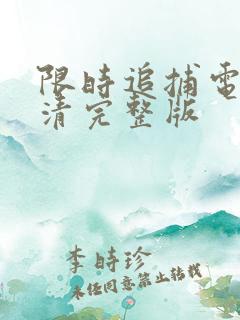 限时追捕電
清完整版
李時珍
未任同意禁止转载